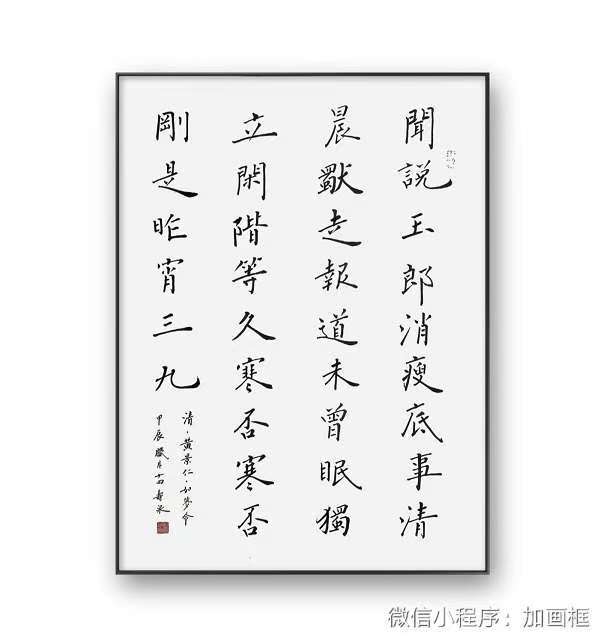 聞說玉郎消瘦底事清
晨獸走報道未曾眠獨
立閑階等久寒否寒否
剛是昨宵三九
清·黃景仁·如夢令
甲辰臘月十四
微信小程序：加画框